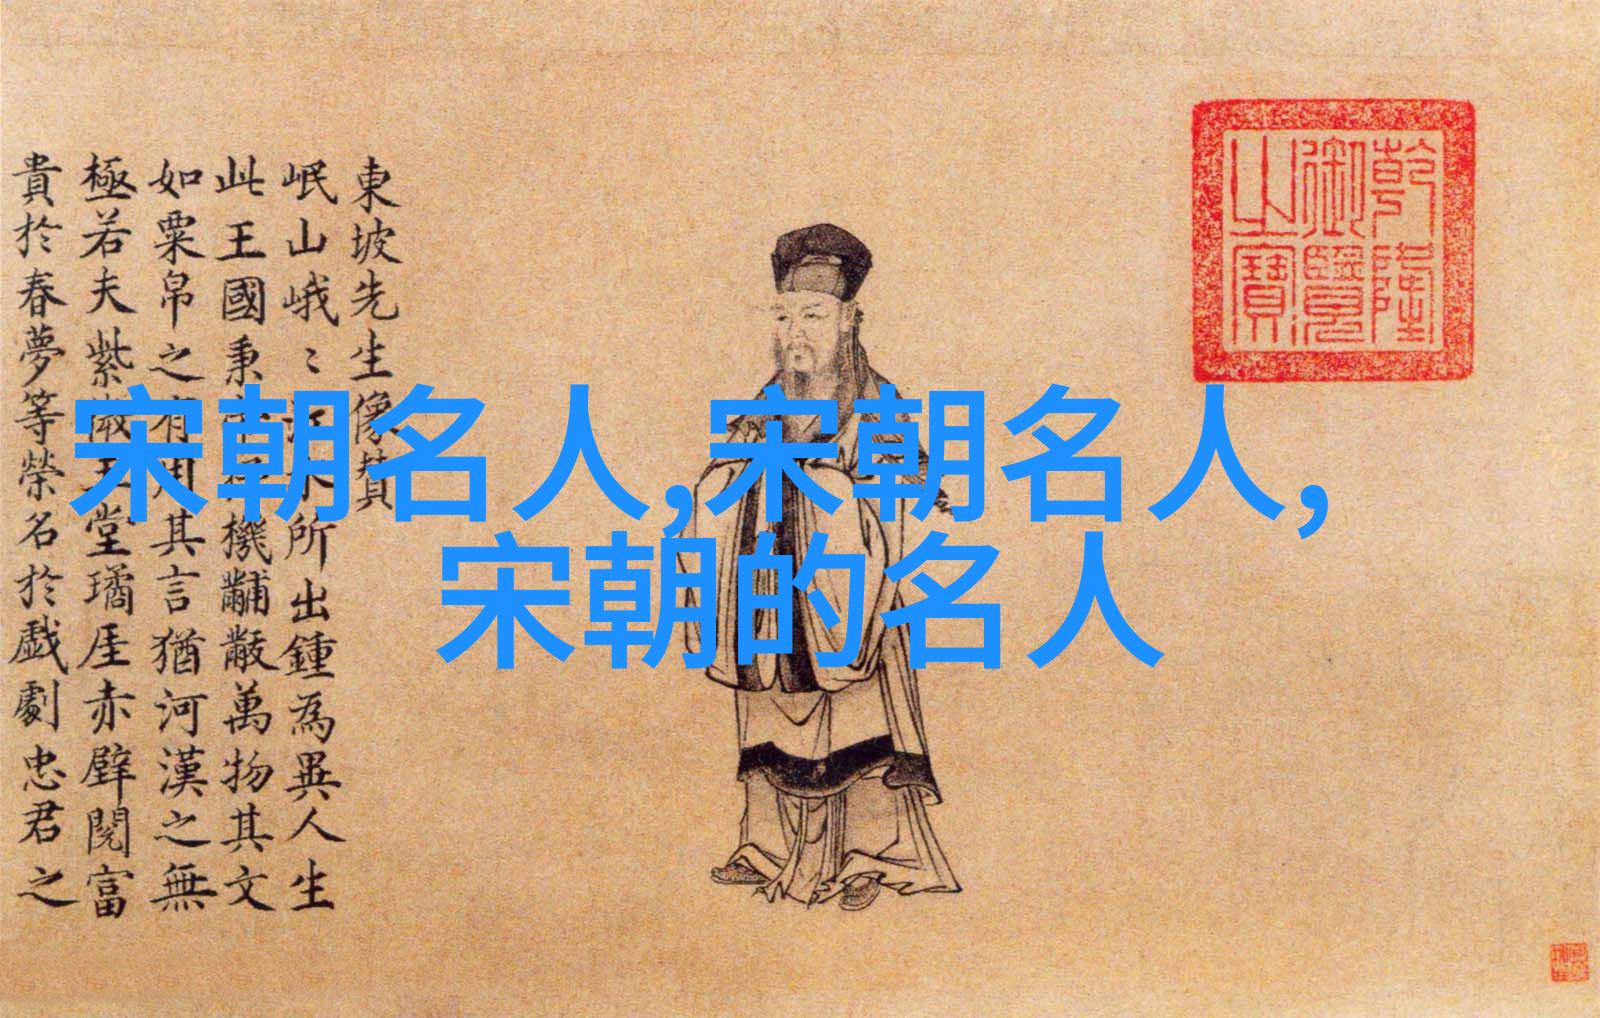 宋朝名人,宋朝名人,
宋朝的名人
東坡先生像贊
岷山峨〻江水所出鍾為異人生
此王國秉帝杼機黼黻萬物其文
如粟帛之有用其言猶河漢之無
極若夫紫微玉堂璚厓赤壁閱富
貴於春夢等榮名於戲劇忠君之
乾隆
御覽
之寶